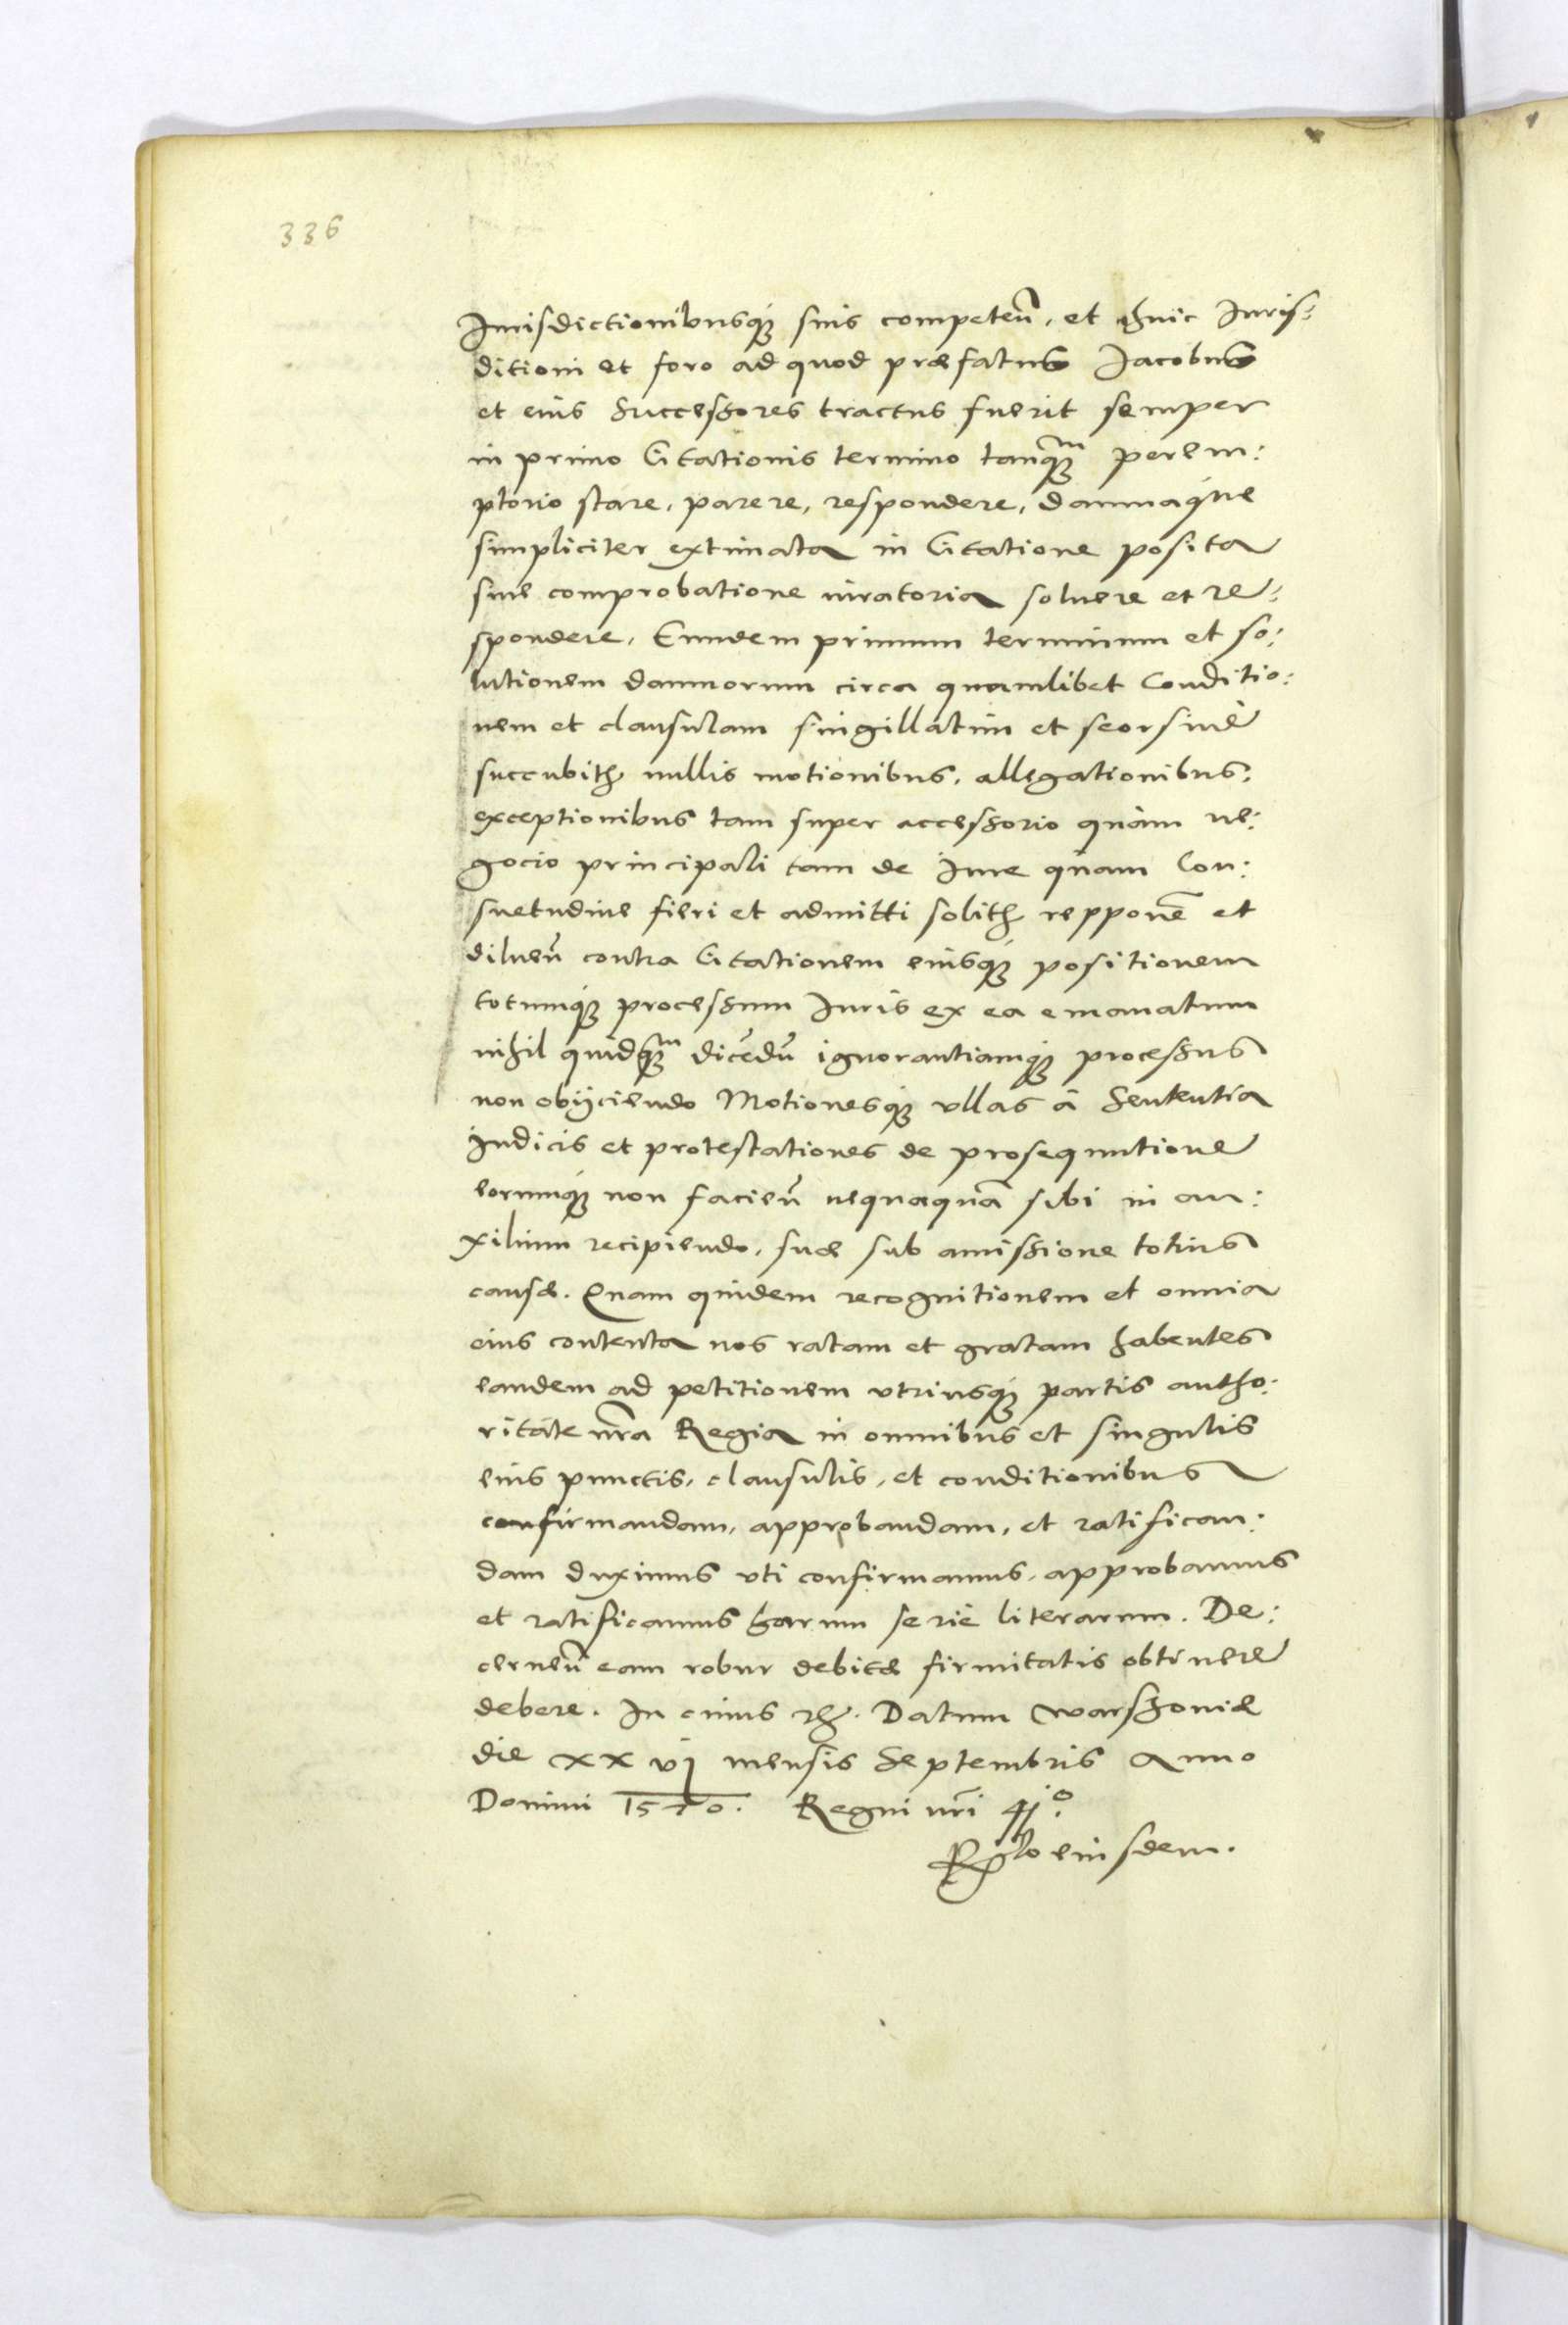 336
Jurisdictionibusq́ꝫ suis competeñ, et huic Juris:
ditioni et foro ad quod præfatus Jacobus
et eius Successores tractus fuerit semper
in primo Citationis termino tanqꝫᵐ perem:
ptorio stare, parere, respondere, damnaque
simpliciter extimata in Citatione posita
sine comprobatione iuratoria soluere et re:
spondere. Eundem primum terminum et so:
lutionem damnorum circa quamlibet Conditio:
nem et clausulam singillatim et seorsiue
succubitꝫ nullis motionibus, allegationibus,
exceptionibus tam super accessorio quàm ne:
gocio principali tam de iure quam Con:
suetudine fieri et admitti solitꝫ repponeñ et
dilueñ contra Citationem eiusq́ꝫ positionem
totumq́ꝫ processum Juris ex ea emanatum
nihil quidqꝫᵐ dicēdū ignorantiamq́ꝫ processus
non obijciendo Motionesq́ꝫ vllas à Sententia
Judicis et protestationes de prosequutione
eorumq́ꝫ non facieñ nequaquā sibi in au:
xilium recipiendo, sue sub amissione totius
causæ. Quam quidem recognitionem et omnia
eius contenta nos ratam et gratam habentes
eandem ad petitionem vtriusq́ꝫ partis autho:
ritate nr̃a Regia in omnibus et singulis
eius punctis, clausulis, et conditionibus
confirmandam, approbandam, et ratifican:
dam duximus vti confirmamus, approbamus
et ratificamus harum serie literarum. De:
cerneñ eam robur debitæ firmitatis obtinere
debere. In cuius rꝫ. Datum Warssoviæ
die xx vj mensis Septembris Anno
Domini 1570. Regni nr̃i 41°.
Rlo eiusdem.